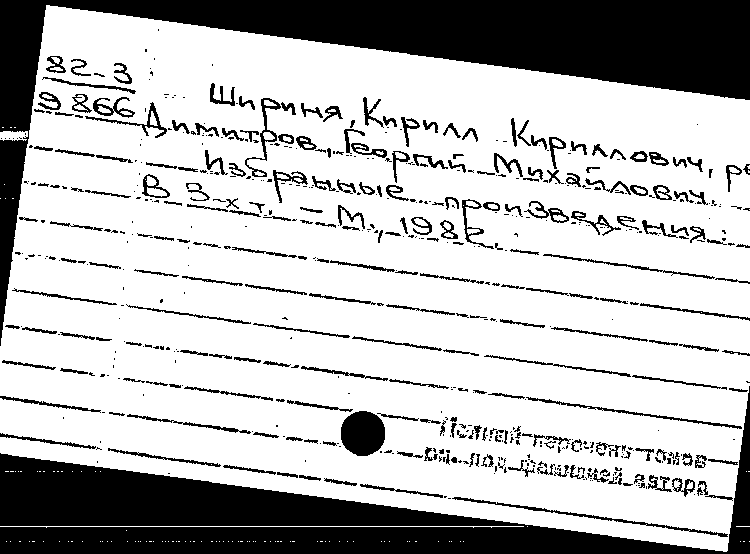 82-3
9866
Шириня, Кирилл Кириллович, ре
Димитров, Георгий Михайлович.
Избранные произведения:
В 3-х т. – М., 1982.
Полный перечень томов
см. под фамилией автора